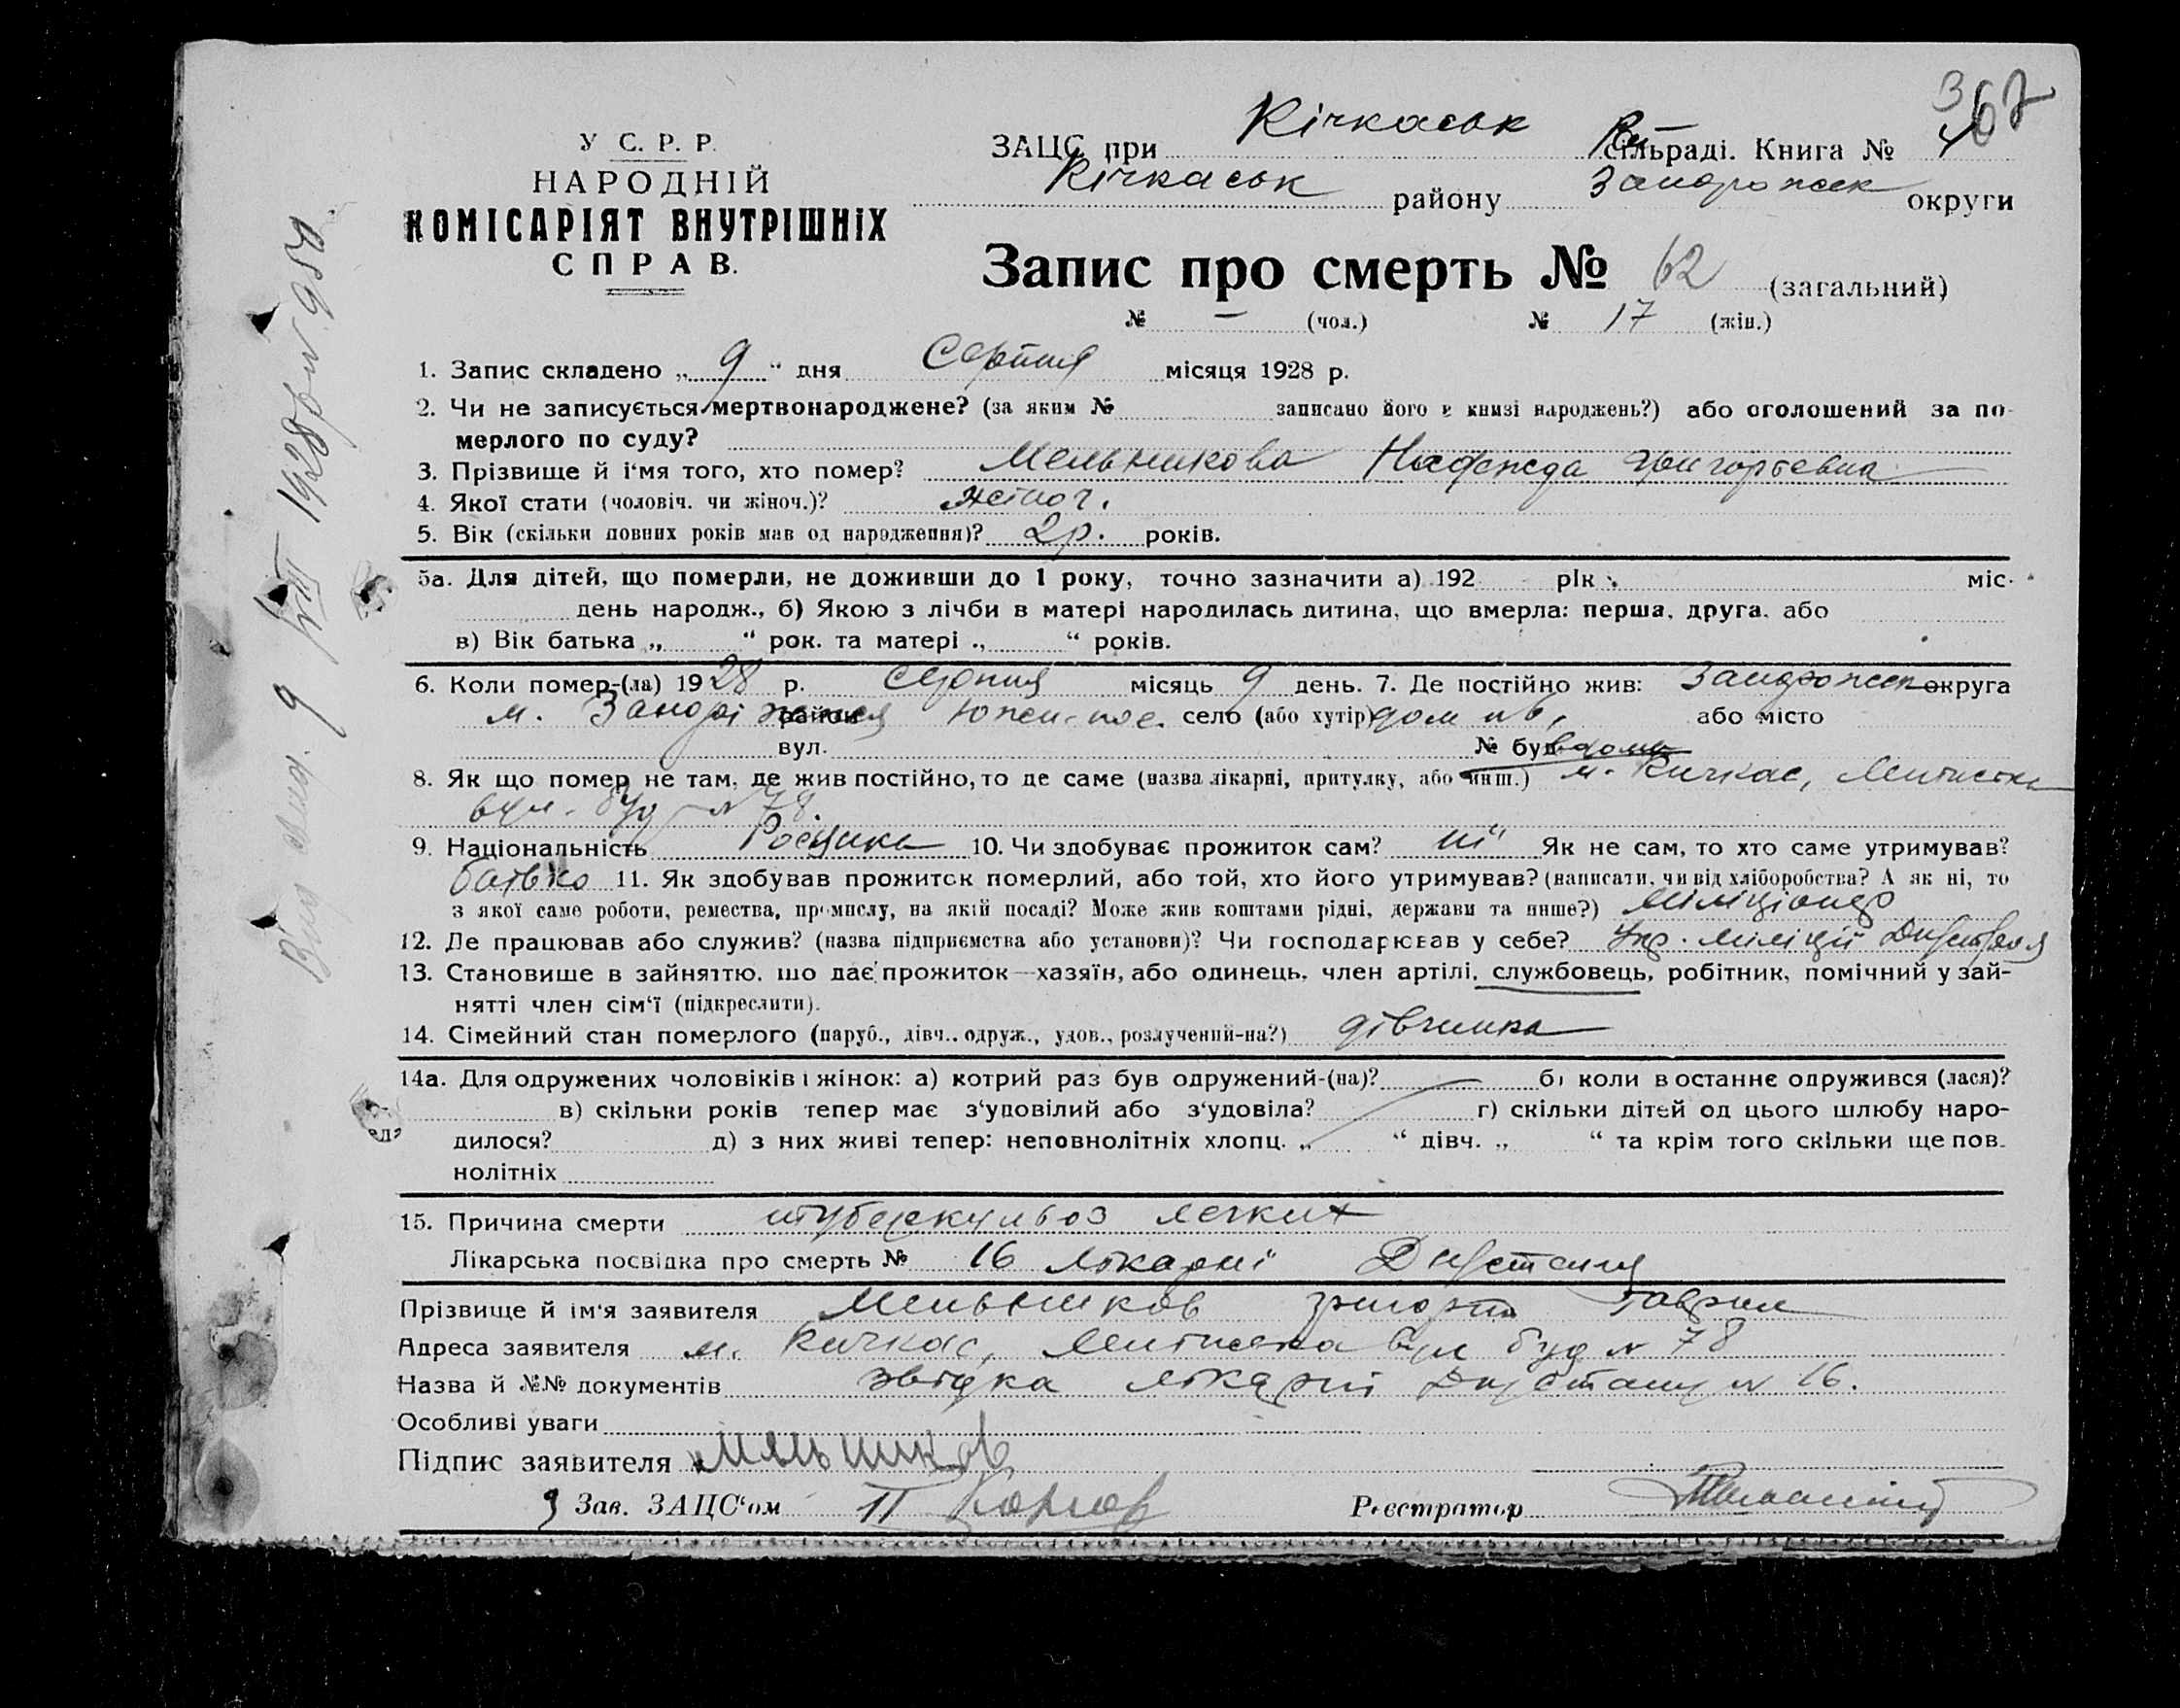 367
У С. Р. Р.
НАРОДНІЙ
КОМІСАРІЯТ ВНУТРІШНІХ
СПРАВ.
ЗАЦС при Кічкаськ сільраді. Книга №
Кічкаськ району Запорожск округи
Запис про смерть № 62 (загальний)
№ — (чол.) № 17 (жін.)
1. Запис складено „ 9 “ дня Серпня місяця 1928 р.
2. Чи не записується мертвонароджене? (за яким № записано його в книзі народжень?) або оголошений за по-
мерлого по суду?
3. Прізвище й і‘мя того, хто помер? Мельникова Надежда Григорьевна
4. Якої стати (чоловіч. чи жіноч.)? жіноч.
5. Вік (скільки повних років мав од народження)? 2 р. років.
5а. Для дітей, що померли, не доживши до 1 року, точно зазначити а) 192 рік міс.
день народж., б) Якою з лічби в матері народилась дитина, що вмерла: перша, друга, або
в) Вік батька „ “ рок. та матері „ “ років.
6. Коли помер-(ла) 1928 р. Серпня місяць 9 день. 7. Де постійно жив: Запорожск округа
м. Запоріжжя район село (або хутір) дом або місто
вул. № буд
8. Як що помер не там, де жив постійно, то де саме (назва лікарні, притулку, або инш.) м. Кичкас,
вул. буд № 78
9. Національність 10. Чи здобуває прожиток сам? ні Як не сам, то хто саме утримував?
батько 11. Як здобував прожиток померлий, або той, хто його утримував? (написати, чи від хліборобства? А як ні, то
з якої саме роботи, ремества, промислу, на якій посаді? Може жив коштами рідні, держави та инше?) Міліціонер
12. Де працював або служив? (назва підприємства або установи)? Чи господарював у себе? Упр. Міліції
13. Становище в зайняттю, що дає прожиток—хазяїн, або одинець, член артілі, службовець, робітник, помічний у зай-
нятті член сім‘ї (підкреслити).
14. Сімейний стан померлого (паруб., дівч., одруж., удов., розлучений-на?) дівчинка
14а. Для одружених чоловіків і жінок: а) котрий раз був одружений-(на)? б) коли в останнє одружився (лася)?
в) скільки років тепер має з‘удовілий або з‘удовіла? г) скільки дітей од цього шлюбу наро-
дилося? д) з них живі тепер: неповнолітніх хлопц. „ “ дівч. „ “ та крім того скільки ще пов-
нолітніх
15. Причина смерти туберкульоз легких
Лікарська посвідка про смерть № 16 лікарні
Прізвище й ім‘я заявителя Мельников Григорій Гаврил
Адреса заявителя м. Кичкас, вул буд № 78
Назва й №№ документів звідка лікарні № 16.
Особливі уваги
Підпис заявителя Мельников
Зав. ЗАЦС‘ом
Реєстратор